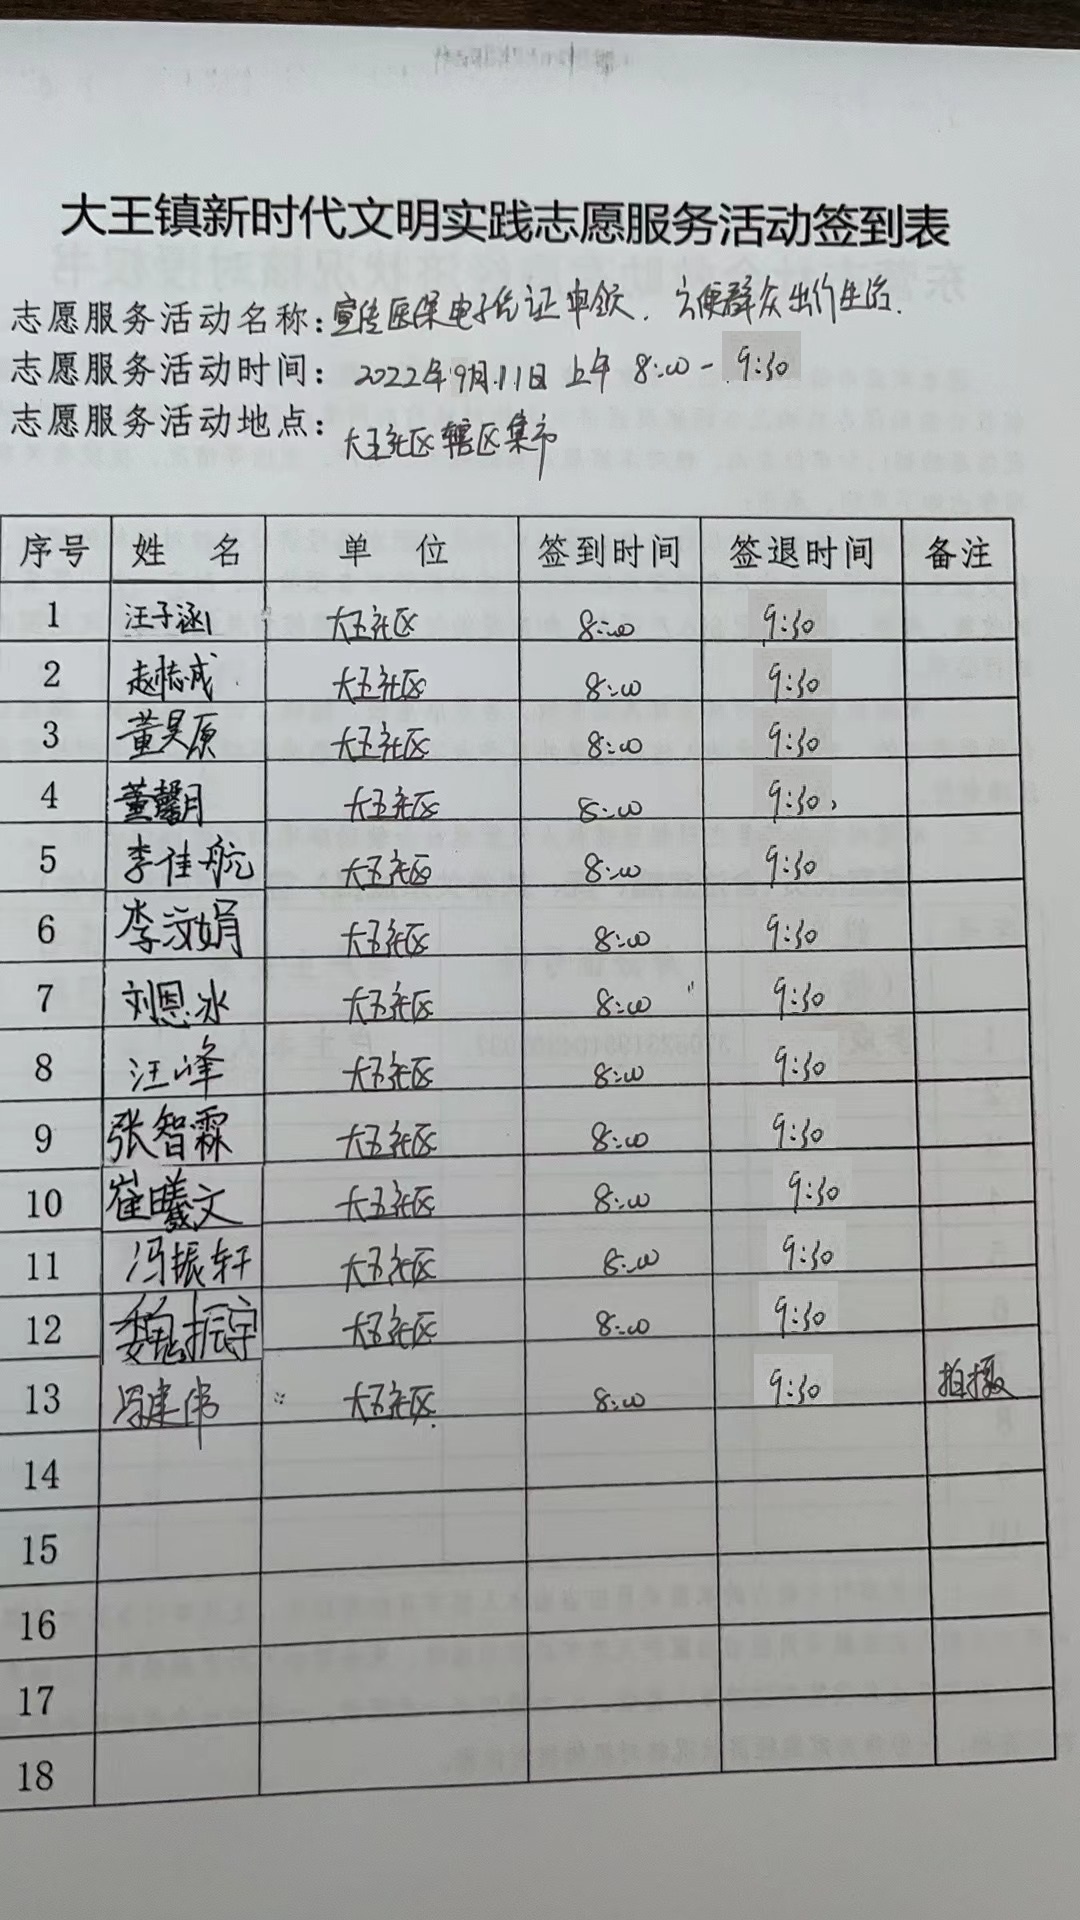 大王镇新时代文明实践志愿服务活动签到表
志愿服务活动名称:宣传医保电子凭证申领.方便群众出行生活.
志愿服务活动时间:2022年9月11日上午8:00-9:30
志愿服务活动地点:大王社区辖区集市
序号 姓名 单位 签到时间 签退时间 备注
1 汪子涵 大王社区 8:00 9:30
2 赵志成 大王社区 8:00 9:30
3 董昊原 大王社区 8:00 9:30
4 董馨月 大王社区 8:00 9:30
5 李佳航 大王社区 8:00 9:30
6 李文娟 大王社区 8:00 9:30
7 刘恩冰 大王社区 8:00 9:30
8 汪峰 大王社区 8:00 9:30
9 张智霖 大王社区 8:00 9:30
10 崔曦文 大王社区 8:00 9:30
11 冯振轩 大王社区 8:00 9:30
12 魏振宇 大王社区 8:00 9:30
13 冯建伟 大王社区 8:00 9:30 拍摄
14
15
16
17
18